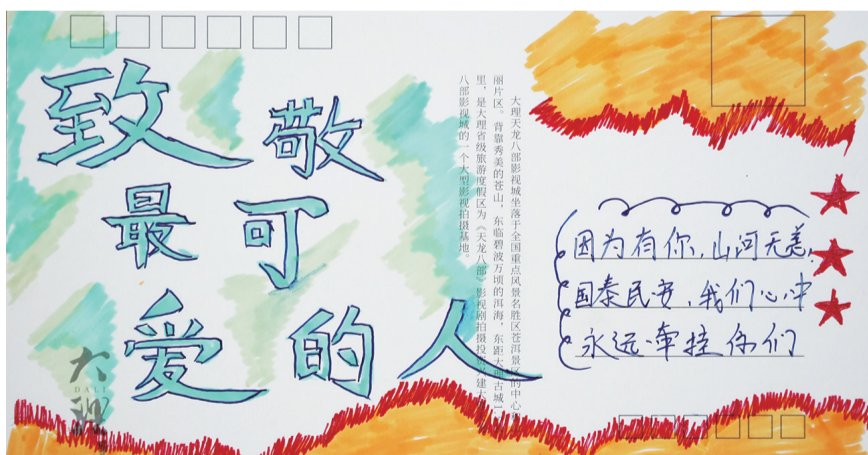 致敬
最可
爱的人
大理天龙八部影视城坐落于全国重点风景名胜区苍洱景区的中心
丽片区。背靠秀美的苍山，东临碧波万顷的洱海，东距大理古城
里，是大理省级旅游度假区为《天龙八部》影视剧拍摄投建大
八部影视城的一个大型影视拍摄基地。
因为有你，山河无恙，
国泰民安，我们心中
永远牵挂你们
大理
DALI